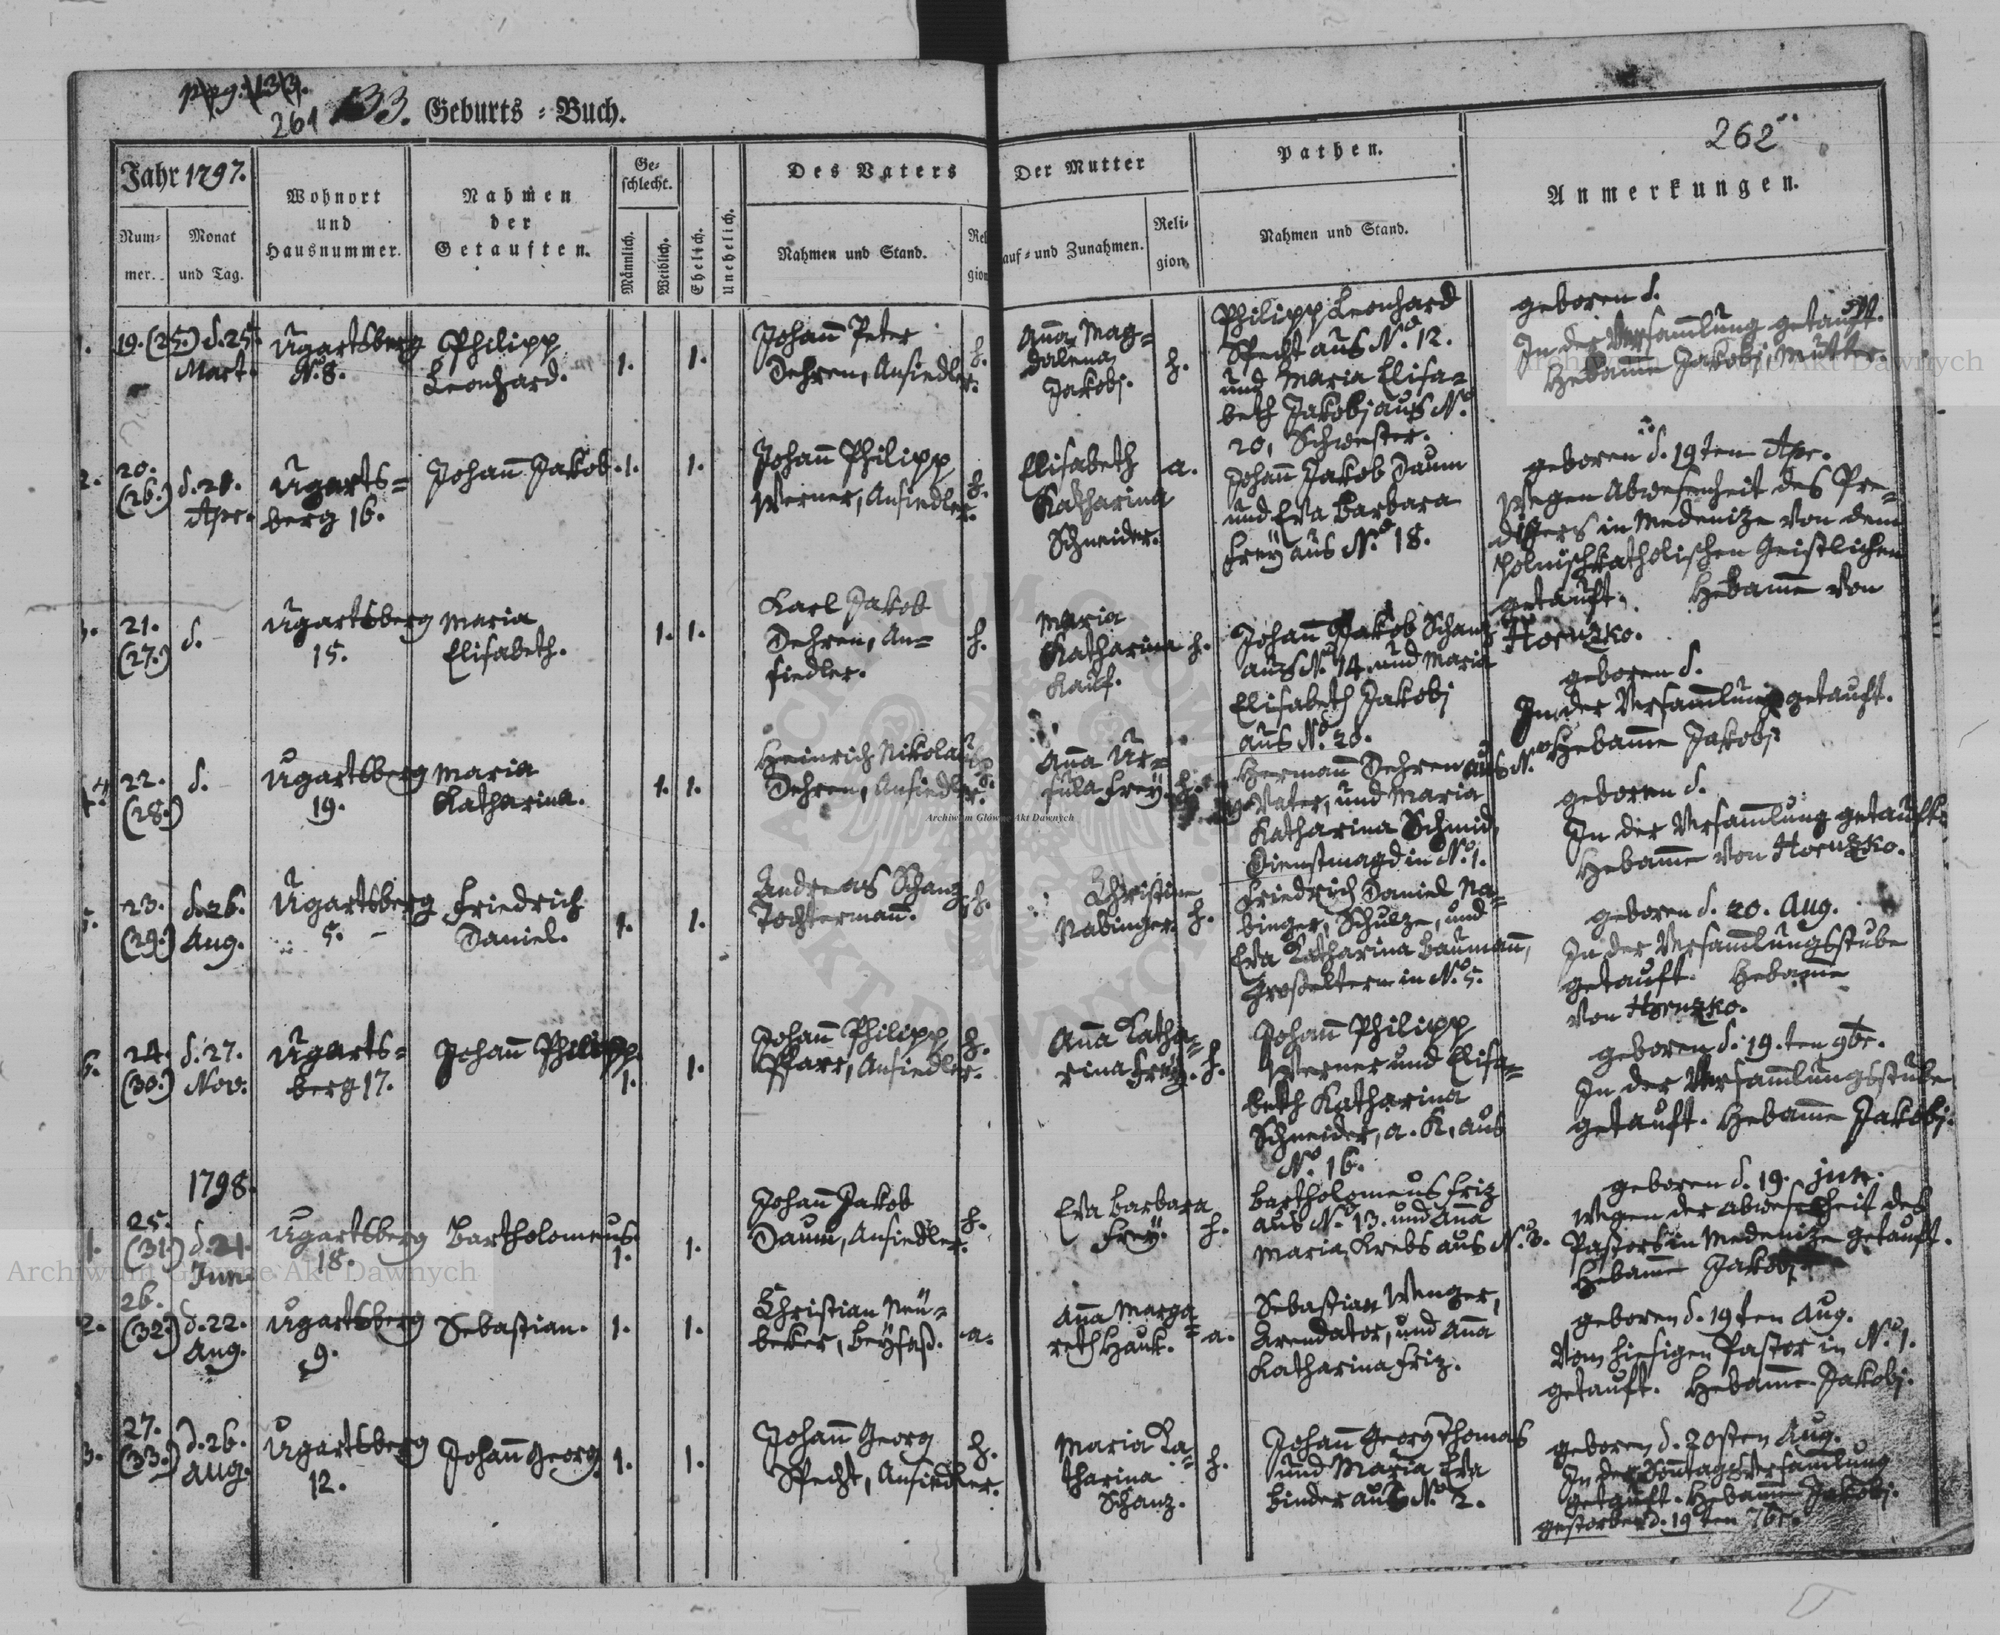 pag. 133.
261 133. Geburts-Buch.
262
Jahr 1797.
Num-
mer.
Monat
und Tag.
Wohnort
und
Hausnummer.
Nahmen
der
Getauften.
Ge-
schlecht.
Männlich.
Weiblich.
Ehelich.
Unehelich.
Des Vaters
Nahmen und Stand.
Reli
gion
Der Mutter
auf- und Zunahmen.
Reli-
gion
Pathen.
Nahmen und Stand.
Anmerkungen.
1.
19. (25.) d. 25.
Mart.
Ugartsberg
N. 8.
Philipp
Leonhard.
1.
1.
Johann Peter
Dehren, Ansiedler.
h.
Anna Mag-
dalena
Jakobj.
h.
Philipp Leonhard
Specht aus No. 12.
und Maria Elisa-
beth Jakobj aus No.
20, Schwester.
geboren d.
In der Versammlung getauft.
Hebamme Jakobj, Mutter.
2.
20.
(26.)
d. 20.
Apr.
Ugarts-
berg 16.
Johann Jakob.
1.
1.
Johann Philipp
Werner, Ansiedler.
h.
Elisabeth
Katharina
Schneider.
a.
Johann Jakob Daum
und Eva Barbara
Frey aus No. 18.
geboren d. 19ten Apr.
Wegen Abwesenheit des Pre-
digers in Medenize von dem
polnischkatholischen Geistlichen
getauft. Hebamme von
Horuzko.
3.
21.
(27.)
d.
Ugartsberg
15.
Maria
Elisabeth.
1.
1.
Karl Jakob
Dehren, An-
siedler.
h.
Maria
Katharina
Kauf.
h.
Johann Jakob Schanz
aus No. 14. und Maria
Elisabeth Jakobj
aus No. 20.
geboren d.
In der Versammlung getauft.
Hebamme Jakobj.
4.
22.
(28.)
d.
Ugartsberg
19.
Maria
Katharina.
1.
1.
Heinrich Nikolaus
Dehren, Ansiedler.
h.
Anna Ur-
sula Frey.
h.
Hermann Dehren aus No
Vater, und Maria
Katharina Schmid,
Dienstmagd in No. 1.
geboren d.
In der Versammlung getauft.
Hebamme von Horuzko.
5.
23.
(29.)
d. 26.
Aug.
Ugartsberg
5.
Friedrich
Daniel.
1.
1.
Andreas Schanz,
Tochtermann.
h.
Christine
Nabinger.
h.
Friedrich Daniel Na-
binger, Schulze, und
Eva Katharina Baumann,
Großeltern in No. 5.
geboren d. 20. Aug.
In der Versammlungsstube
getauft. Hebamme
von Horuzko.
6.
24.
(30.)
d. 27.
Nov.
Ugarts-
berg 17.
Johann Philipp.
1.
1.
Johann Philipp
Pfarr, Ansiedler.
h.
Anna Katha-
rina Frey.
h.
Johann Philipp
Werner und Elisa-
beth Katharina
Schneider, a. K, aus
No. 16.
geboren d. 19. ten 9br.
In der Versammlungsstube
getauft. Hebamme Jakobj.
1798.
1.
25.
(31.)
d. 21.
Jun.
Ugartsberg
18.
Bartholomeus.
1.
1.
Johann Jakob
Daum, Ansiedler.
h.
Eva Barbara
Frey.
h.
Bartholomeus Friz
aus No. 13. und Anna
Maria Krebs aus No. 3.
geboren d. 19. Jun.
Wegen der Abwesenheit des
Pastors in Medenize getauft.
Hebamme Jakobj.
2.
26.
(32.)
d. 22.
Aug.
Ugartsberg
9.
Sebastian.
1.
1.
Christian Neü-
beker, Beysaß.
a.
Anna Marga-
reth Hauk.
a.
Sebastian Wenger,
Arendator, und Anna
Katharina Friz.
geboren d. 19ten Aug.
Vom hiesigen Pastor in No. 1.
getauft. Hebamme Jakobj.
3.
27.
(33.)
d. 26.
Aug.
Ugartsberg
12.
Johann Georg.
1.
1.
Johann Georg
Specht, Ansiedler.
h.
Maria Ka-
tharina
Schanz.
h.
Johann Georg Thomas
und Maria Eva
Binder aus No. 2.
geboren d. 20sten Aug.
In der Sonntagsversammlung
getauft. Hebamme Jakobj.
gestorben d. 19ten 7br.
Archiwum Główne Akt Dawnych
Archiwum Główne Akt Dawnych
Archiwum Główne Akt Dawnych